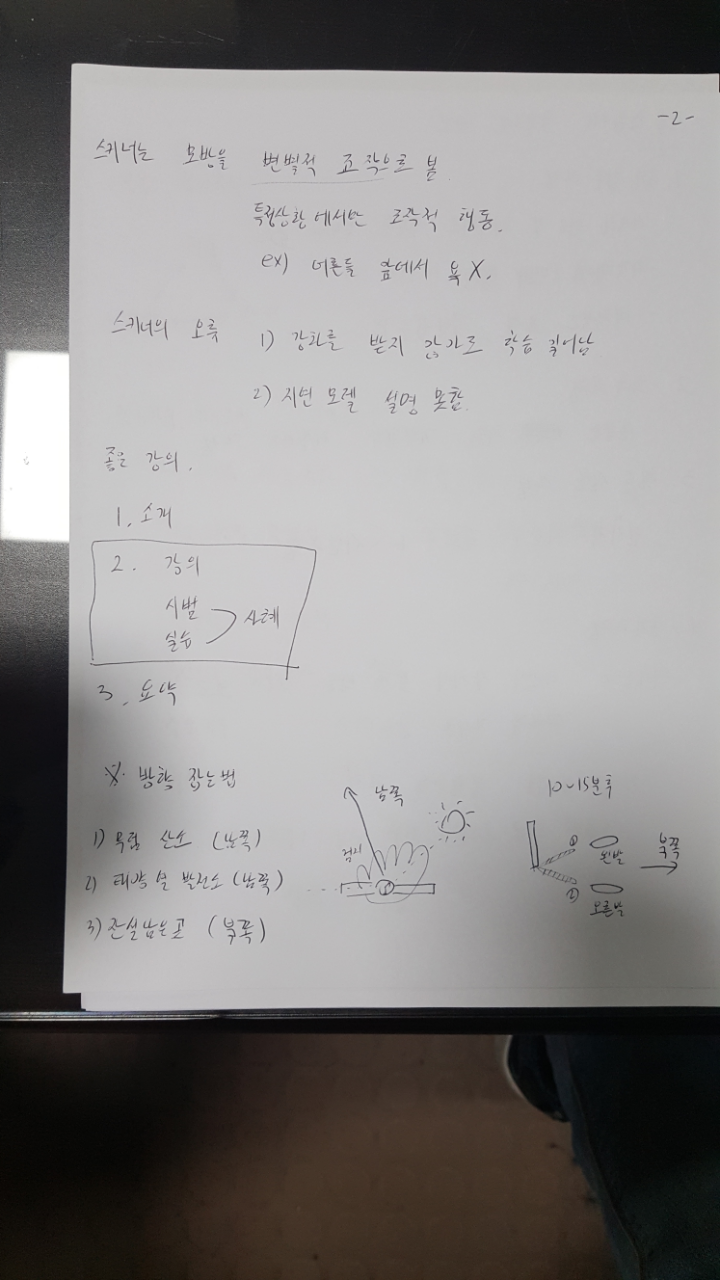 -2-
스키너는 모방을 변별적 조작으로 봄.
특정상황에서만 조작적 행동.
ex) 어른들 앞에서 욕X.
스키너의 오류 1) 강화를 받지 않아도 학습 일어남
2) 지연 모델 설명 못함.
좋은 강의.
1. 소개
2. 강의
시범
실습
사례
3. 요약
※ 방향 잡는법
1) 산소 (남쪽)
2) 태양열 발전소 (남쪽)
3) 잔설남은곳 (북쪽)
남쪽
검지
10~15분후
① 왼발
② 오른발
북쪽